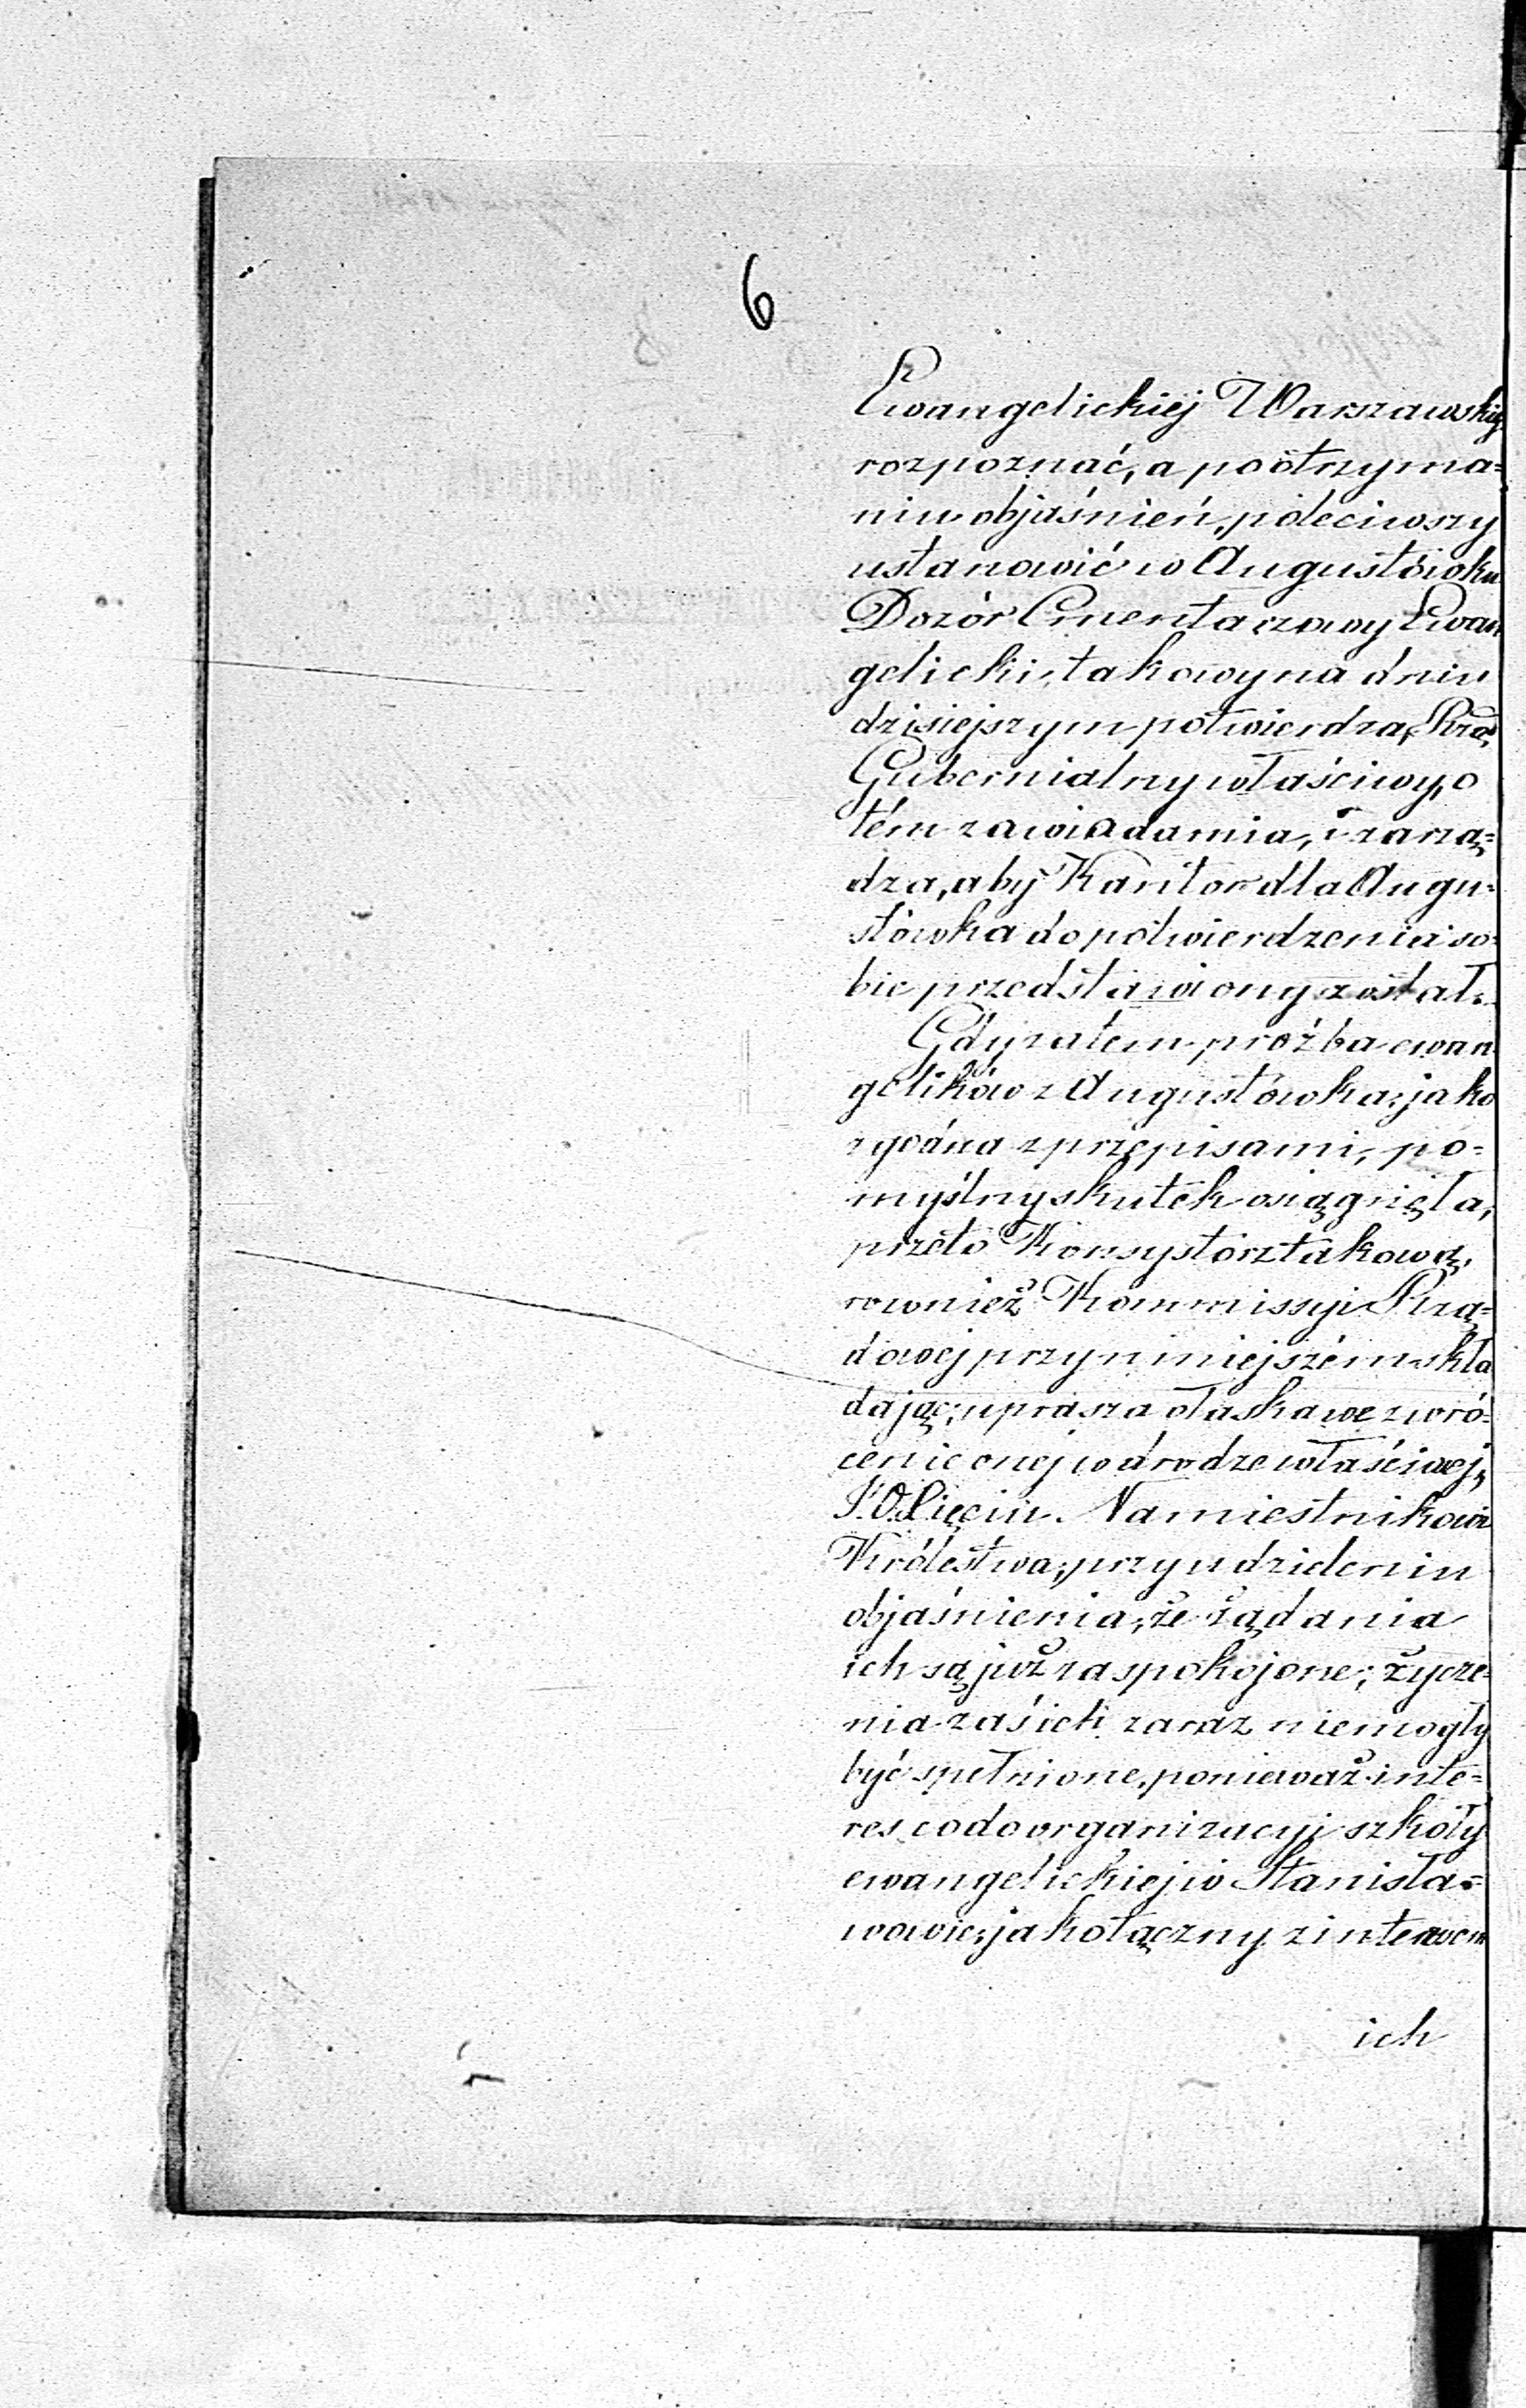 6
Ewangelickiej Warszawskiej
rozpoznać, a po otrzyma=
niu objaśnień, poleciwszy
ustanowić w Augustówku
Dozór Cmentarzowy Ewan
gelicki, takowy na dniu
dzisiejszym potwierdza, Rząd
Gubernialny właściwy, o
tém zawiadamia, i zarzą=
dza, aby Kantor dla Augu=
stówka do potwierdzenia so=
bie przedstawiony został.
Gdy zatem proźba ewan
gelików z Augustówka, jako
zgodna z przepisami, po=
myślny skutek osiągnęła,
przeto Konsystorz takową,
rownież Kommissyi Rzą=
dowej przy niniejszém skła
dając, uprasza o łaskawe zwró=
cenie onej w drodze właściwej,
J.O. Xięciu Namiestnikowi
Królestwa, przy udzieleniu
objaśnienia, że żądania
ich są już zaspokojone; życze=
nia zaś ich zaraz niemogły
być spełnione, ponieważ inte=
res co do organizacyi szkoły
ewangelickiej w Stanisła=
wowie, jako łączny z interesem
ich